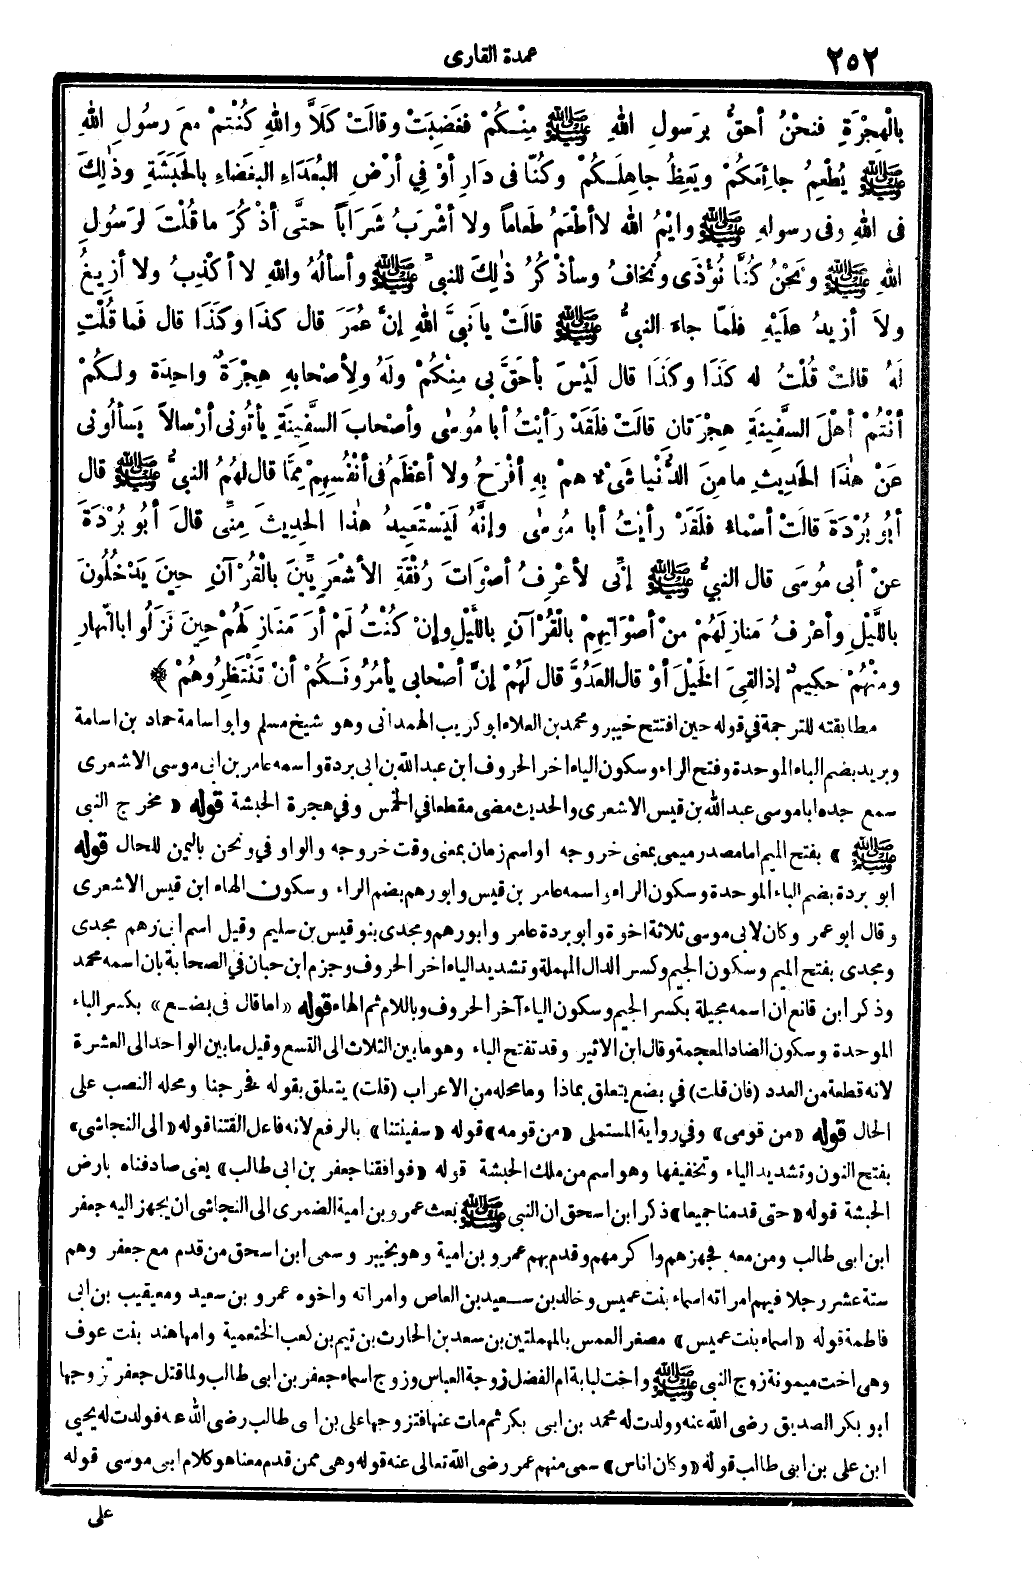 ٢٥٢
عمدة القارى
بالْهِجْرَةِ فنحْنُ أحقُّ بِرَسولِ اللهِ ﷺ مِنْـكُمْ فغَضِبَتْ وقالَتْ كَلاَّ واللهِ كُنْتمْ معَ رسُولِ اللهِ
ﷺ يُطْعِمُ جائِعَكُمْ ويَعِظُ جاهِلَـكُمْ وكُنَّا فى دَارِ أوْ فِي أرْضِ البُعَدَاءِ البُغَضاءِ بالحَبَشَةِ وذٰلِكَ
فى اللهِ وفى رسولهِ ﷺ وايْمُ الله لاأطْعَمُ طَعاماً ولا أشْرَبُ شَرَاباً حتَّى أذْكُرَ ماقُلْتَ لرَسُولِ
اللهِ ﷺ ونَحْنُ كُنَّا نُوْذَى ونُخافُ وسأذْكُرُ ذٰلِكَ للنبىِّ ﷺ وأسألُهُ واللهِ لاأكْذِبُ ولا أزِيغُ
ولاَ أزِيدُ علَيْهِ فلَمَّا جاءَ النبىُّ ﷺ قالَتْ يانَبىَّ اللهِ إنَّ عُمَرَ قال كذَا وكَذَا قال فَماقُلْتِ
لَهُ قالتْ قُلْتُ له كَذَا وكَذَا قال لَيْسَ بأحَقَّ بي مِنكُمْ ولهُ ولِأصْحابهِ هِجْرَةٌ واحِدَة ولـكُمْ
أنْتُمْ أهْلَ السَّفِينَةِ هِجْرَتانِ قالَتْ فلَقَدْ رَأيْتُ أبا مُوسٰى وأصْحابَ السَّفِينَةِ يأتُونى أرْسالاً يَسألُونى
عَنْ هٰذَا الحَدِيثِ مامِنَ الدُّنْيا شَىْءٌ همْ بِهِ أفْرَحُ ولا أعْظَمُ فى أنْفُسِهِمْ مِمَّا قال لهُمُ النبىُّ ﷺ قال
أبُو بُرْدَةَ قالَتْ أسْماءُ فلَقَدْ رأيْتُ أبا مُوسٰى وإنَّهُ لَيَسْتَعِيدُ هذَا الحدِيثَ مِنِّى قالَ أبُو بُرْدَةَ
عنْ أبى مُوسَى قال النبيُّ ﷺ إنِّى لأعْرِفُ أصْوَاتَ رُفْقَةِ الأشْعَرِيِّينَ بالْقُرْآنِ حِينَ يَدْخُلُونَ
باللَّيْلِ وأعْرِفُ مَنازِلَهُمْ منْ أصْوَاتِهِمْ بالْقُرْآنِ باللَّيْلِ وإنْ كُنْتُ لَمْ أرَ مَنازِلَهُمْ حِينَ نَزَلُوا بالنَّهارِ
ومنْهُمْ حكِيمٌ إذَالقِىَ الخَيْلَ أوْ قال العَدُوَّ قال لَهُمْ إنَّ أصْحابى يأمُرُونَـكُمْ أنْ تَنْتَظِرُوهُمْ ﴾
مطابقته للترجمة في قوله حين افتتح خيبر ومحمد بن العلاء ابو كريب الهمدانى وهو شيخ مسلم وابو اسامة حماد بن اسامة
وبريد بضم الباء الموحدة وفتح الراء وسكون الياء اخر الحروف ابن عبد الله بن ابى بردة واسمه عامر بن ابى موسى الاشعرى
سمع جده ابا موسى عبد الله بن قيس الاشعرى والحديث مضى مقطعا في الخمس وفي هجرة الحبشة قوله «مخرج النبى
ﷺ» بفتح الميم اما مصدر ميمى بمعنى خروجه او اسم زمان بمعنى وقت خروجه والواو في ونحن باليمن للحال قوله
ابو بردة بضم الباء الموحدة وسكون الراء واسمه عامر بن قيس وابو رهم بضم الراء وسكون الهاء ابن قيس الاشعرى
وقال ابو عمر وكان لابى موسى ثلاثة اخوة وابو بردة عامر وابو رهم ومجدى بنو قيس بن سليم وقيل اسم ابى رهم مجدى
ومجدى بفتح الميم وسكون الجيم وكسر الدال المهملة وتشديد الياء اخر الحروف وجزم ابن حبان في الصحابة بان اسمه محمد
وذكر ابن قانع ان اسمه مجيلة بكسر الجيم وسكون الياء آخر الحروف وباللام ثم الهاء قوله «اما قال فى بضع» بكسر الباء
الموحدة وسكون الضاد المعجمة وقال ابن الاثير وقد تفتح الباء وهو ما بين الثلاث الى التسع وقيل ما بين الواحد الى العشرة
لانه قطعة من العدد (فان قلت) في بضع يتعلق بماذا وما محله من الاعراب (قلت) يتعلق بقوله فخرجنا ومحله النصب على
الحال قوله «من قومى» وفي رواية المستملى «من قومه» قوله «سفينتنا» بالرفع لانه فاعل القتنا قوله «الى النجاشى»
بفتح النون وتشديد الياء وتخفيفها وهو اسم من ملك الحبشة قوله «فوافقنا جعفر بن ابى طالب» يعنى صادفناه بارض
الحبشة قوله «حتى قدمنا جميعا» ذكر ابن اسحق ان النبى ﷺ بعث عمرو بن امية الضمرى الى النجاشى ان يجهز اليه جعفر
ابن ابى طالب ومن معه فجهزهم واكرمهم وقدم بهم عمرو بن امية وهو بخيبر وسمى ابن اسحق من قدم مع جعفر وهم
ستة عشر رجلا فيهم امراته اسماء بنت عميس وخالد بن سـعيد بن العاص وامراته واخوه عمرو بن سعيد ومعيقيب بن ابى
فاطمة قوله «اسماء بنت عميس» مصغر العمس بالمهملتين بن سعد بن الحارث بن تيم بن كعب الخثعمية وامها هند بنت عوف
وهى اخت ميمونة زوج النبى ﷺ واخت لبابة ام الفضل زوجة العباس وزوج اسماء جعفر بن ابى طالب ولما قتل جعفر تزوجها
ابو بكر الصديق رضى الله عنه وولدت له محمد بن ابى بكر ثم مات عنها فتزوجها على بن ابى طالب رضى الله عنه فولدت له يحيى
ابن على بن ابى طالب قوله «وكان اناس» سمى منهم عمر رضى الله تعالى عنه قوله وهى ممن قدم معنا هو كلام ابى موسى قوله
على